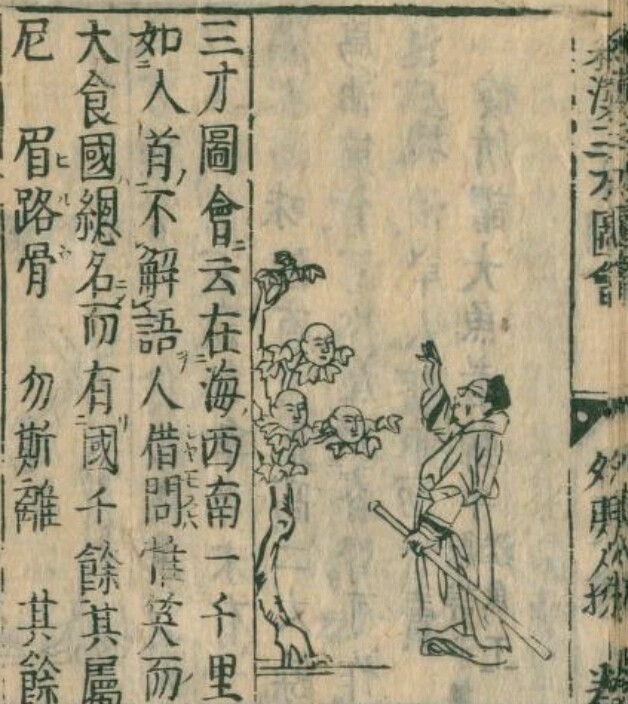 和漢三才圖會
外夷人物
三才圖會云在海西南一千里
如人首不解語人借問惟笑而
大食國總名而有國千餘其屬
尼　眉路骨　勿斯離　其餘